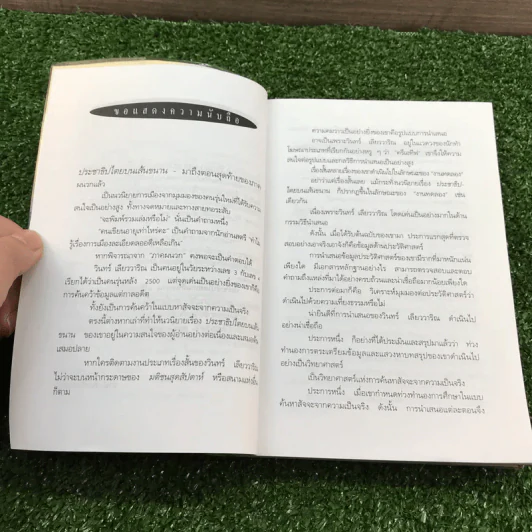 ขอแสดงความนับถือ
ประชาธิปไตยบนเส้นขนาน - มาถึงตอนสุดท้ายของภาค
ผนวกแล้ว
เป็นนวนิยายการเมืองจากมุมมองของคนรุ่นใหม่ที่ได้รับความ
สนใจเป็นอย่างสูง ทั้งทางจดหมายและทางสายกระสับ
'จะพิมพ์รวมเล่มหรือไม่' นั่นเป็นคำถามหนึ่ง
'คนเขียนอายุเท่าไหร่คะ' เป็นคำถามจากนักอ่านสตรี
รู้เรื่องการเมืองละเอียดลออดีเหลือเกิน'
หากพิจารณาจาก "ภาคผนวก" คงพอจะเป็นคำตอบได้
วินทร์ เลียววาริณ เป็นคนอยู่ในวัยระหว่างเลข 3 กับเลข 4
เรียกได้ว่าเป็นคนรุ่นหลัง 2500 แต่จุดเด่นเป็นอย่างยิ่งของเขาก็คือ
การค้นคว้าข้อมูลแต่กาลอดีต
ทั้งยังเป็นการค้นคว้าในแบบหาสัจจะจากความเป็นจริง
ตรงนี้ต่างหากเล่าที่ทำให้นวนิยายเรื่อง ประชาธิปไตยบนเส้น
ขนาน ของเขาอยู่ในความสนใจของผู้อ่านอย่างต่อเนื่องและเสมอต้น
เสมอปลาย
หากใครติดตามงานประเภทเรื่องสั้นของวินทร์ เลียววาริณ
ไม่ว่าจะบนหน้ากระดาษของ มติชนสุดสัปดาห์ หรือสนามแห่งอื่น
ก็ตาม
ความคะวว่าเป็นอย่างยิ่งของเขาคือรูปแบบการนำเสนอ
โฆษณาประเภทที่เรียกกันอย่างหรู ๆ ว่า "ครีเอทีฟ" เขาจึงให้ความ
สนใจต่อรูปแบบและกลวิธีการนำเสนอเป็นอย่างสูง
เรื่องสั้นหลายเรื่องของเขาดำเนินไปในลักษณะของ "งานทดลอง"
อย่าว่าแต่เรื่องสั้นเลย แม้กระทั่งนวนิยายเรื่อง ประชาธิป-
ไตยบนเส้นขนาน ก็ปรากฏขึ้นในลักษณะของ "งานทดลอง" เช่น
เดียวกัน
เนื่องเพราะวินทร์ เลียววาริณ โดดเด่นเป็นอย่างมากในด้าน
กรรมวิธีนำเสนอ
ดังนั้น เมื่อได้รับต้นฉบับของเขามา ประการแรกสุดที่ตรวจ
สอบอย่างเอาจริงเอาจังก็คือข้อมูลด้านประวัติศาสตร์
การนำเสนอข้อมูลประวัติศาสตร์ของเขามีรากที่มาหนักแน่น
เพียงใด มีเอกสารหลักฐานอย่างไร สามารถตรวจสอบและตอบ
คำถามถึงแหล่งที่มาได้อย่างครบถ้วน และน่าเชื่อถือมากน้อยเพียงใด
ประการต่อมาก็คือ วิเคราะห์มุมมองต่อประวัติศาสตร์ว่า
ดำเนินไปด้วยความเที่ยงธรรมหรือไม่
น่ายินดีที่การนำเสนอของวินทร์ เลียววาริณ ดำเนินไป
อย่างน่าเชื่อถือ
ประการหนึ่ง ก็อย่างที่ได้ประเมินและสรุปมาแล้วว่า ท่วง
ทำนองการตระเตรียมข้อมูลและแสวงหาบทสรุปของเขาดำเนินไป
อย่างเป็นวิทยาศาสตร์
เป็นวิทยาศาสตร์แห่งการค้นหาสัจจะจากความเป็นจริง
ประการหนึ่ง เมื่อเขากำหนดท่วงทำนองการศึกษาในแบบ
ค้นหาสัจจะจากความเป็นจริง ดังนั้น การนำเสนอแต่ละตอนจึง